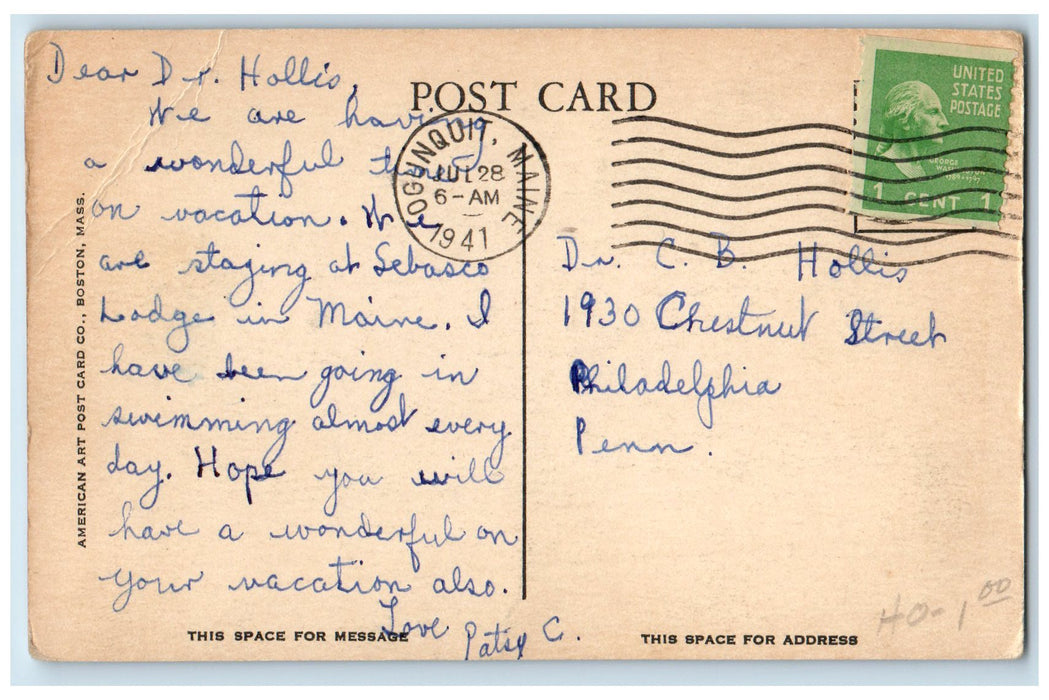 Dear Dr. Hollis,
We are having
a wonderful time
on vacation. We
are staying at Sebasco
Lodge in Maine. I
have been going in
swimming almost every
day. Hope you will
have a wonderful on
your vacation also.
Love Patsy C.
THIS SPACE FOR MESSAGE
AMERICAN ART POST CARD CO., BOSTON, MASS.
POST CARD
OGUNQUIT, MAINE
JUL 28
6-AM
1941
UNITED
STATES
POSTAGE
GEORGE
WASHINGTON
1789-1797
1 CENT 1
Dr. C. B. Hollis
1930 Chestnut Street
Philadelphia
Penn.
HO-1.00
THIS SPACE FOR ADDRESS